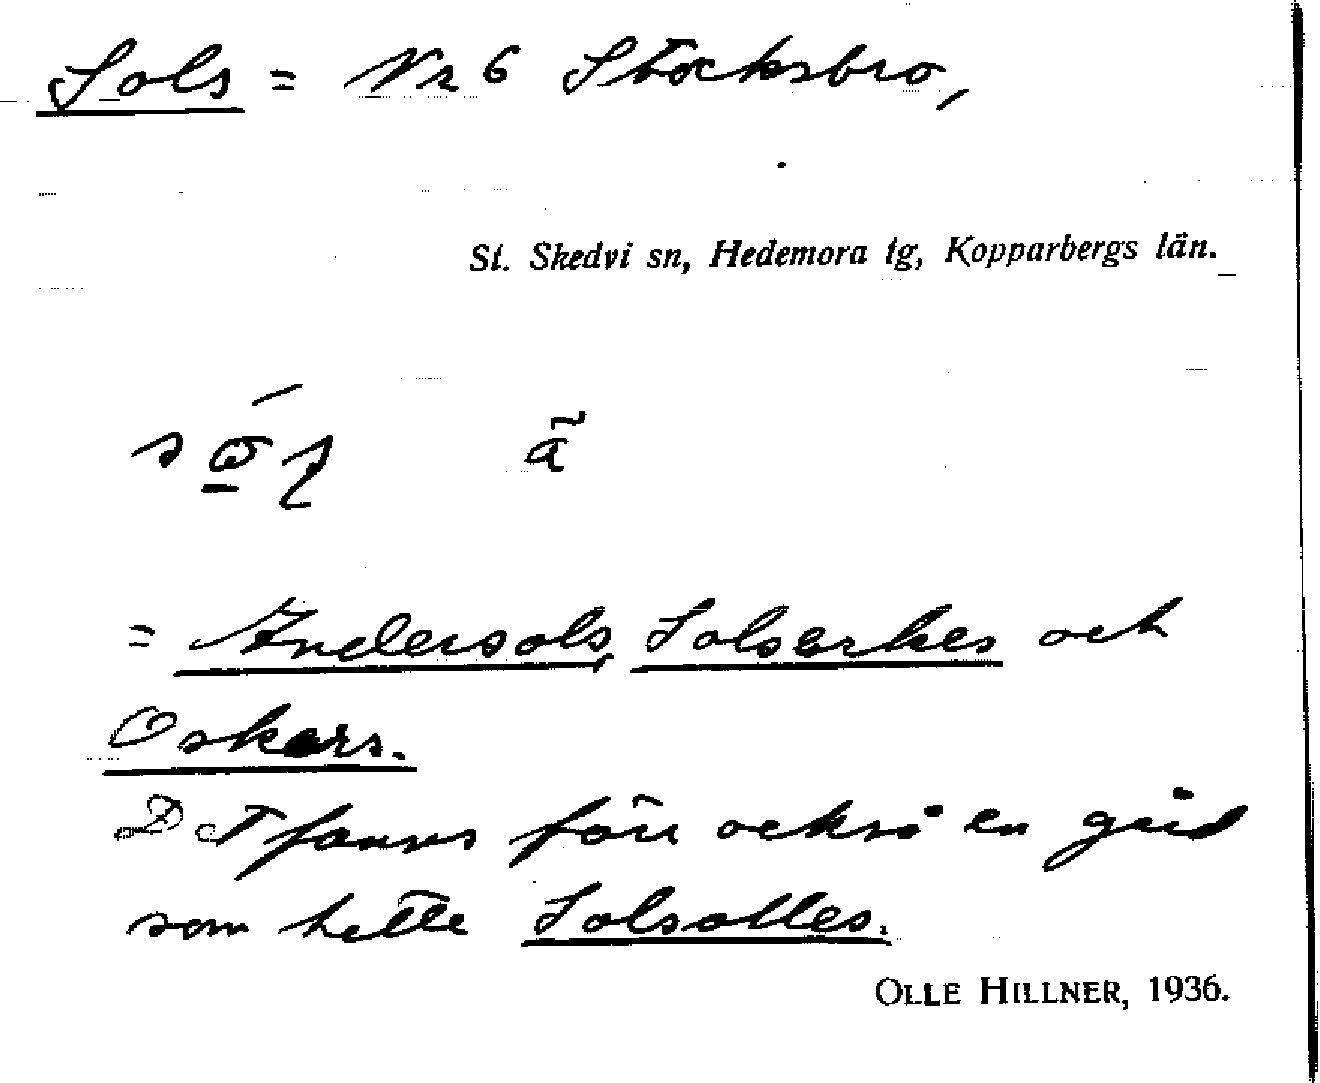 Sols = Nr 6 Stocksbro,
St. Skedvi sn, Hedemora tg, Kopparbergs län.
= Andersols, Solserkes och
Oskers.
Det fanns förr också en gård
som hette Solsolles.
OLLE HILLNER, 1936.